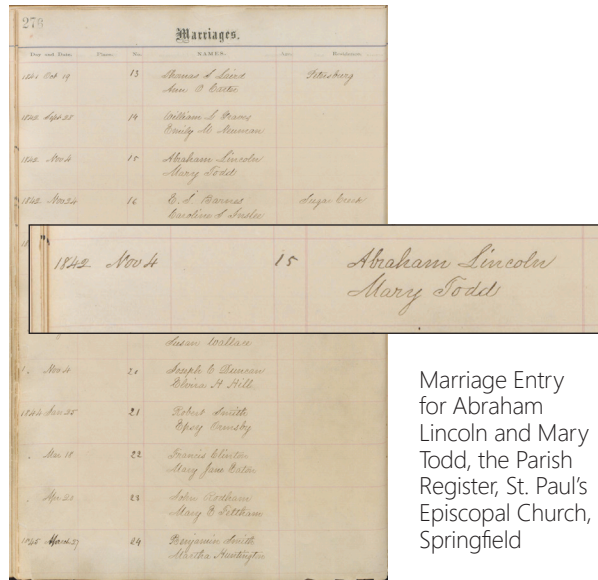 278
Marriages.
Day and Date. Place. No. NAMES. Age. Residence.
1841 Oct 19 13 Thomas S Laird Petersburg
Ann O
1842 Sept 28 14 William
Emily M. Newman
1842 Nov 4 15 Abraham Lincoln
Mary Todd
1842. Nov 24 16 E. S. Barnes Sugar Creek
Caroline S
1842 Nov 4 15 Abraham Lincoln
Mary Todd
Susan Wallace
Nov 4 20 Joseph C Duncan
Elvira H Hill
1844 21 Robert Smith
Epsy Ormsby
Mar 18 22 Francis Clinton
Mary Jane Eaton
Apr 23 John Rodham
Mary E
1845 24 Benjamin Smith
Martha Huntington
Marriage Entry
for Abraham
Lincoln and Mary
Todd, the Parish
Register, St. Paul's
Episcopal Church,
Springfield